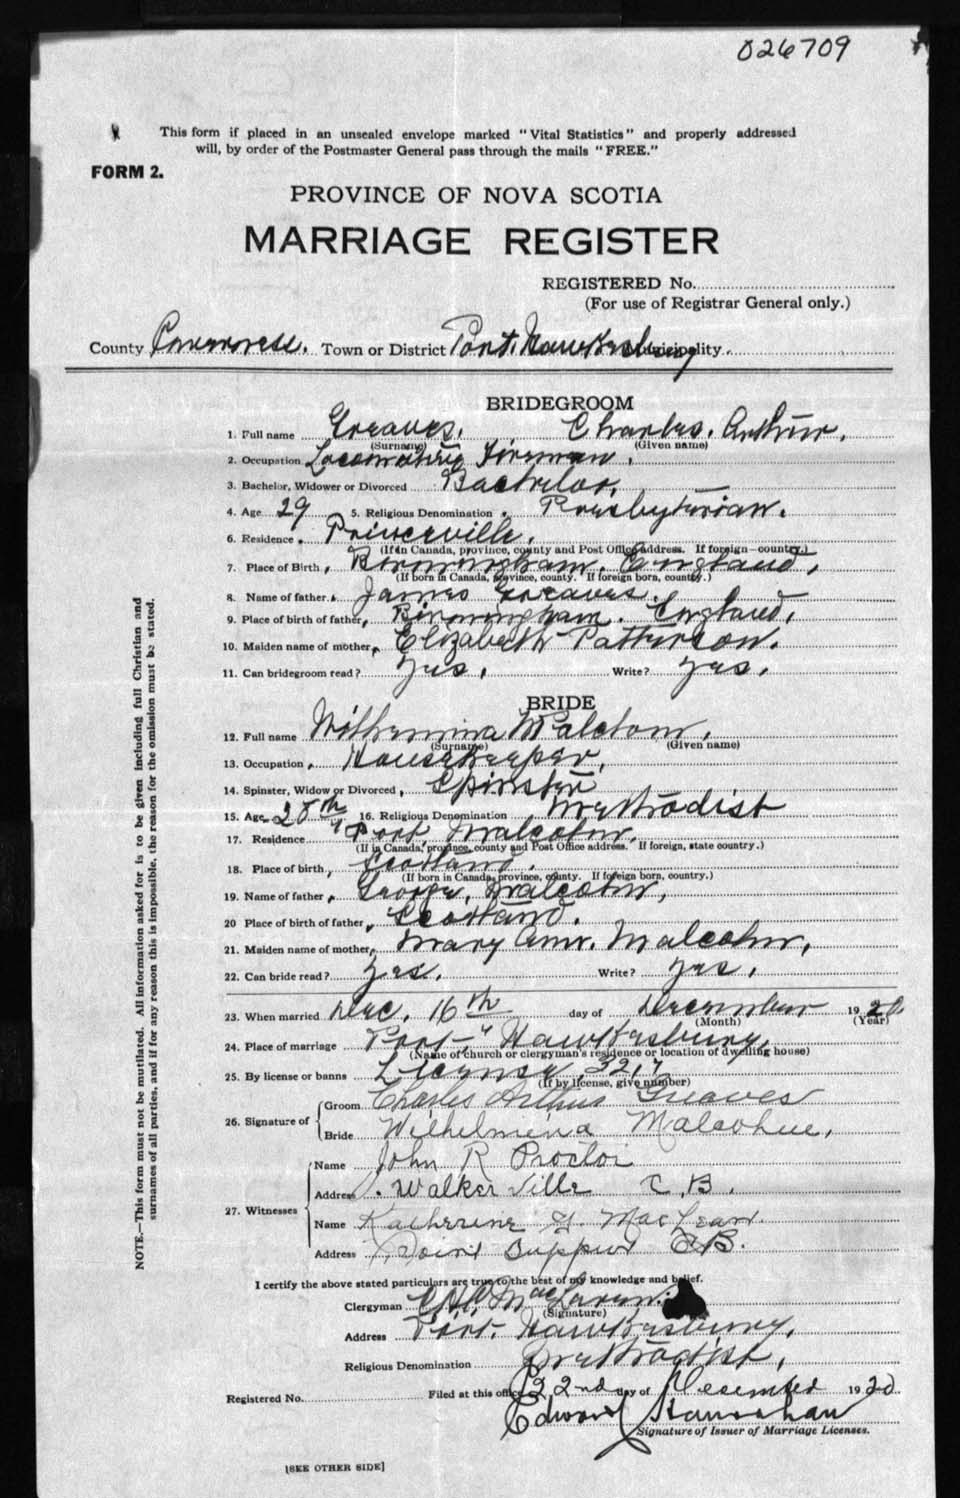 026709
This form if placed in an unsealed envelope marked "Vital Statistics" and properly addressed
will, by order of the Postmaster General pass through the mails "FREE."
FORM 2.
PROVINCE OF NOVA SCOTIA
MARRIAGE REGISTER
REGISTERED No.
(For use of Registrar General only.)
County Inverness. Town or District Port Hawkesbury Municipality
BRIDEGROOM
1. Full name Greaves. Charles. Arthur.
(Surname) (Given name)
2. Occupation Locomotive Fireman.
3. Bachelor, Widower or Divorced Bachelor.
4. Age 29 5. Religious Denomination Presbyterian.
6. Residence Princeville.
(If in Canada, province, county and Post Office address. If foreign—country.)
7. Place of Birth Birmingham. England.
(If born in Canada, province, county. If foreign born, country.)
8. Name of father James Greaves.
9. Place of birth of father Birmingham. England.
10. Maiden name of mother Elizabeth Patterson.
11. Can bridegroom read? Yes. Write? Yes.
BRIDE
12. Full name Wilhemina Malcolm.
(Surname) (Given name)
13. Occupation Housekeeper.
14. Spinster, Widow or Divorced Spinster
15. Age 16. Religious Denomination Methodist
17. Residence Port Malcolm.
(If in Canada, province, county and Post Office address. If foreign, state country.)
18. Place of birth Scotland.
(If born in Canada, province, county. If foreign born, country.)
19. Name of father George, Malcolm,
20 Place of birth of father Scotland.
21. Maiden name of mother Mary Ann. Malcolm,
22. Can bride read? Yes. Write? Yes.
23. When married Dec. 16th day of December 1920
(Month) (Year)
24. Place of marriage Port Hawkesbury.
(Name of church or clergyman's residence or location of dwelling house)
25. By license or banns License 3217
(If by license, give number)
26. Signature of
Groom Charles Arthur Greaves
Bride Wilhelmina
27. Witnesses
Name John R Proctor
Address Walkerville C.B.
Name Katherine Y. MacLean.
Address Point Tupper C.B.
I certify the above stated particulars are true to the best of my knowledge and belief.
Clergyman MacLaren
(Signature)
Address Port. Hawkesbury.
Religious Denomination Methodist,
Registered No. Filed at this office 22nd day of December 1920
Edward Hanrahan
Signature of Issuer of Marriage Licenses.
[SEE OTHER SIDE]
NOTE.—This form must not be mutilated. All information asked for is to be given including full Christian and
surnames of all parties, and if for any reason this is impossible, the reason for the omission must be stated.